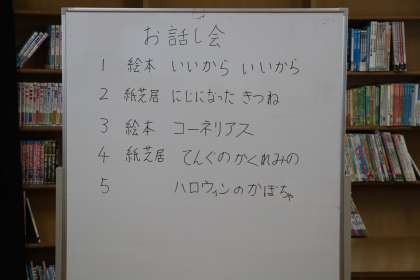 お話し会
1 絵本 いいから いいから
2 紙芝居 にじになった きつね
3 絵本 コーネリアス
4 紙芝居 てんぐのかくれみの
5 ハロウィンのかぼちゃ